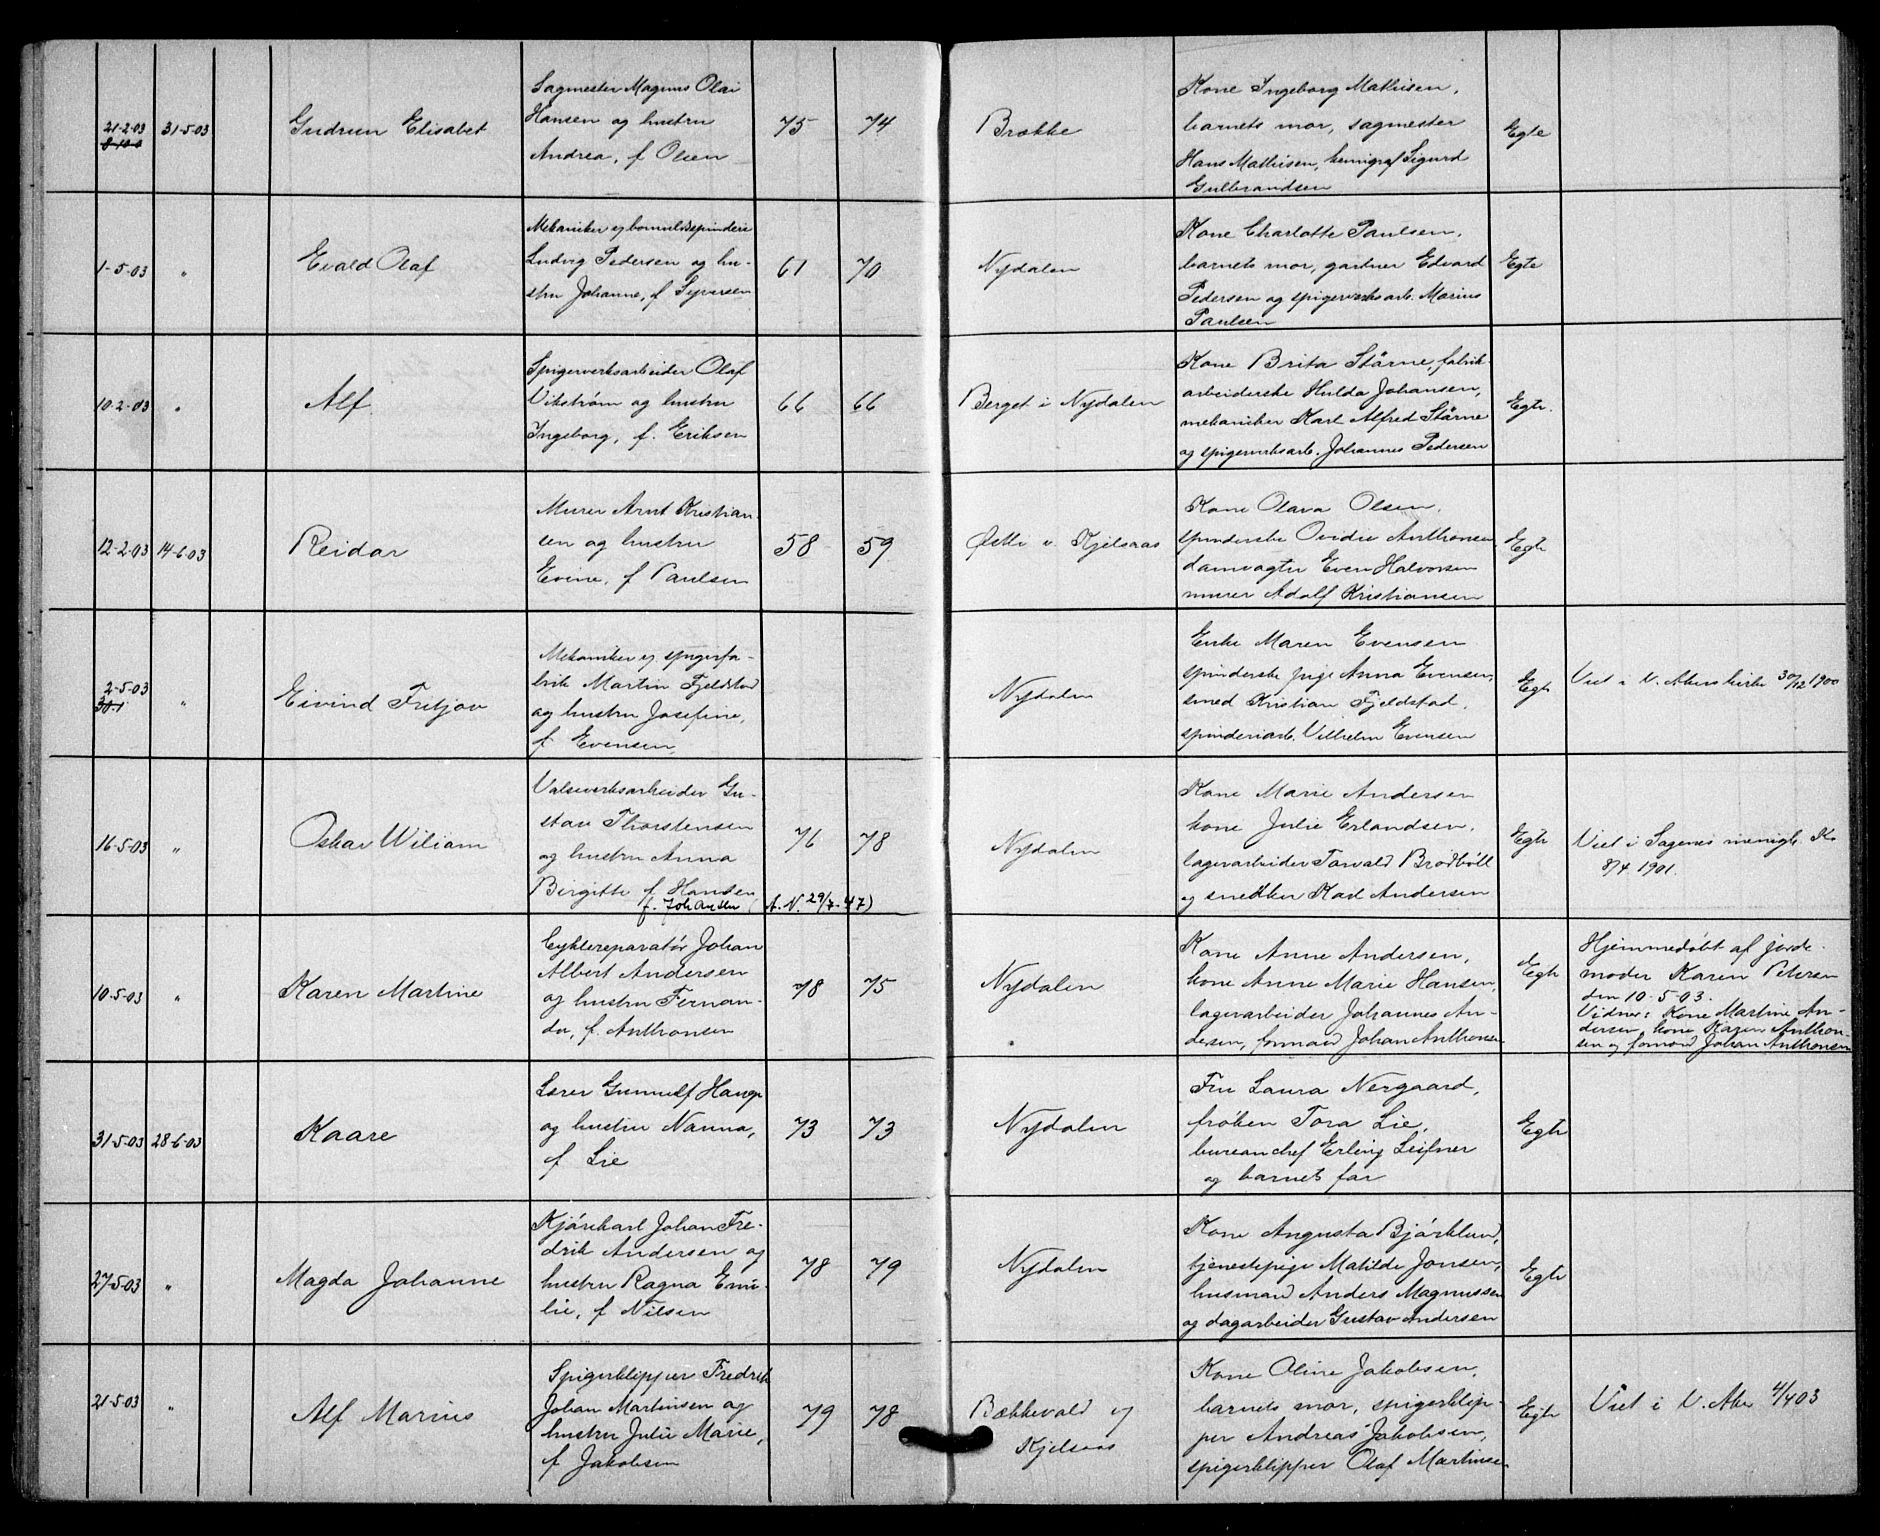 21-2-03 31-5-03 Gudrun Elisabet
8-10-0
Sagmester Magnus Olai
Hansen og hustru
Andrea, f Olsen
75 74 Brække
Kone Ingeborg Mathisen,
barnets mor, sagmester
Hans Mathisen, Sigurd
Gulbrandsen
Egte
1-5-03 " Evald Olaf
Mekaniker v bomuldsspinderi
Ludvig Pedersen og hu-
stru Johanne, f Syversen
61 70 Nydalen
Kone Charlotte Paulsen,
barnets mor, gartner Edvard
Pedersen og spigerverksarb. Marius
Paulsen
Egte
10-2-03 " Alf
Spigerverksarbeider Olaf
Vikstrøm og hustru
Ingeborg, f. Eriksen
66 66 Berget i Nydalen
Kone Brita Stårne, fabrik-
arbeiderske Hulda Johansen,
mekaniker Karl Alfred Stårne
og spigerverksarb. Johannes Pedersen
Egte
12-2-03 14-6-03 Reidar
Murer Arnt Kristian-
sen og hustru
Evine, f Paulsen
58 59 v. Kjelsaas
Kone Olava Olsen,
spinderske Ovidie Anthonsen
damvogter Even Halvorsen
murer Adolf Kristiansen
Egte
2-5-03 " Eivind Fritjov
30.1
Mekaniker v. spigerfa-
brik Martin Fjeldstad
og hustru Josefine,
f Evensen
Nydalen
Enke Maren Evensen
spinderske pige Anna Evensen,
smed Kristian Fjeldstad,
spinderiarb. Vilhelm Evensen
Egte
Viet i V. Akers kirke 30/12 1900
16-5-03 " Oskar Wiliam
Valseverksarbeider Gu-
stav Thorstensen
og hustru Anna
Birgitte f. Hansen
f. Johansen (A.N. 29/7-47)
76 78 Nydalen
Kone Marie Andersen
kone Julie Erlandsen,
lagerarbeider Torvald Brodtböll
og snedker Karl Andersen
Egte
Viet i Sagenes menigh. K.
8/4 1901.
10-5-03 " Karen Martine
Cyklereparatør Johan
Albert Andersen
og hustru Fernan-
da, f. Anthonsen
78 75 Nydalen
Kone Anne Andersen,
kone Anne Marie Hansen,
lagerarbeider Johannes An-
dersen, formand Johan Anthonsen
Egte
Hjemmedøbt af jorde-
moder Karen Petersen
den 10-5-03.
Vidner: Kone Martine An-
dersen, kone Karen Anthon-
sen og formand Johan Anthonsen
31-5-03 28-6-03 Kaare
Lærer Gunnulf Hauge
og hustru Nanna,
f Lie
73 73 Nydalen
Fru Laura Nergaard,
frøken Tora Lie,
bureauchef Erling
og barnets far
Egte
27-5-03 " Magda Johanne
Kjørekarl Johan Fre-
drik Andersen og
hustru Ragna Emi-
lie, f Nilsen
78 79 Nydalen
Kone Augusta Bjørklund,
tjenestepige Matilde Jonsen,
husmand Anders Magnussen
og dagarbeider Gustav Andersen
Egte
21-5-03 " Alf Marius
Spigerklipper Fredrik
Johan Martinsen og
hustru Julie Marie,
f Jakobsen
79 78 Bækkevold v
Kjelsaas
Kone Oline Jakobsen,
barnets mor, spigerklip-
per Andreas Jakobsen,
spigerklipper Olaf Martinsen
Egte
Viet i V. Aker 4/4 03